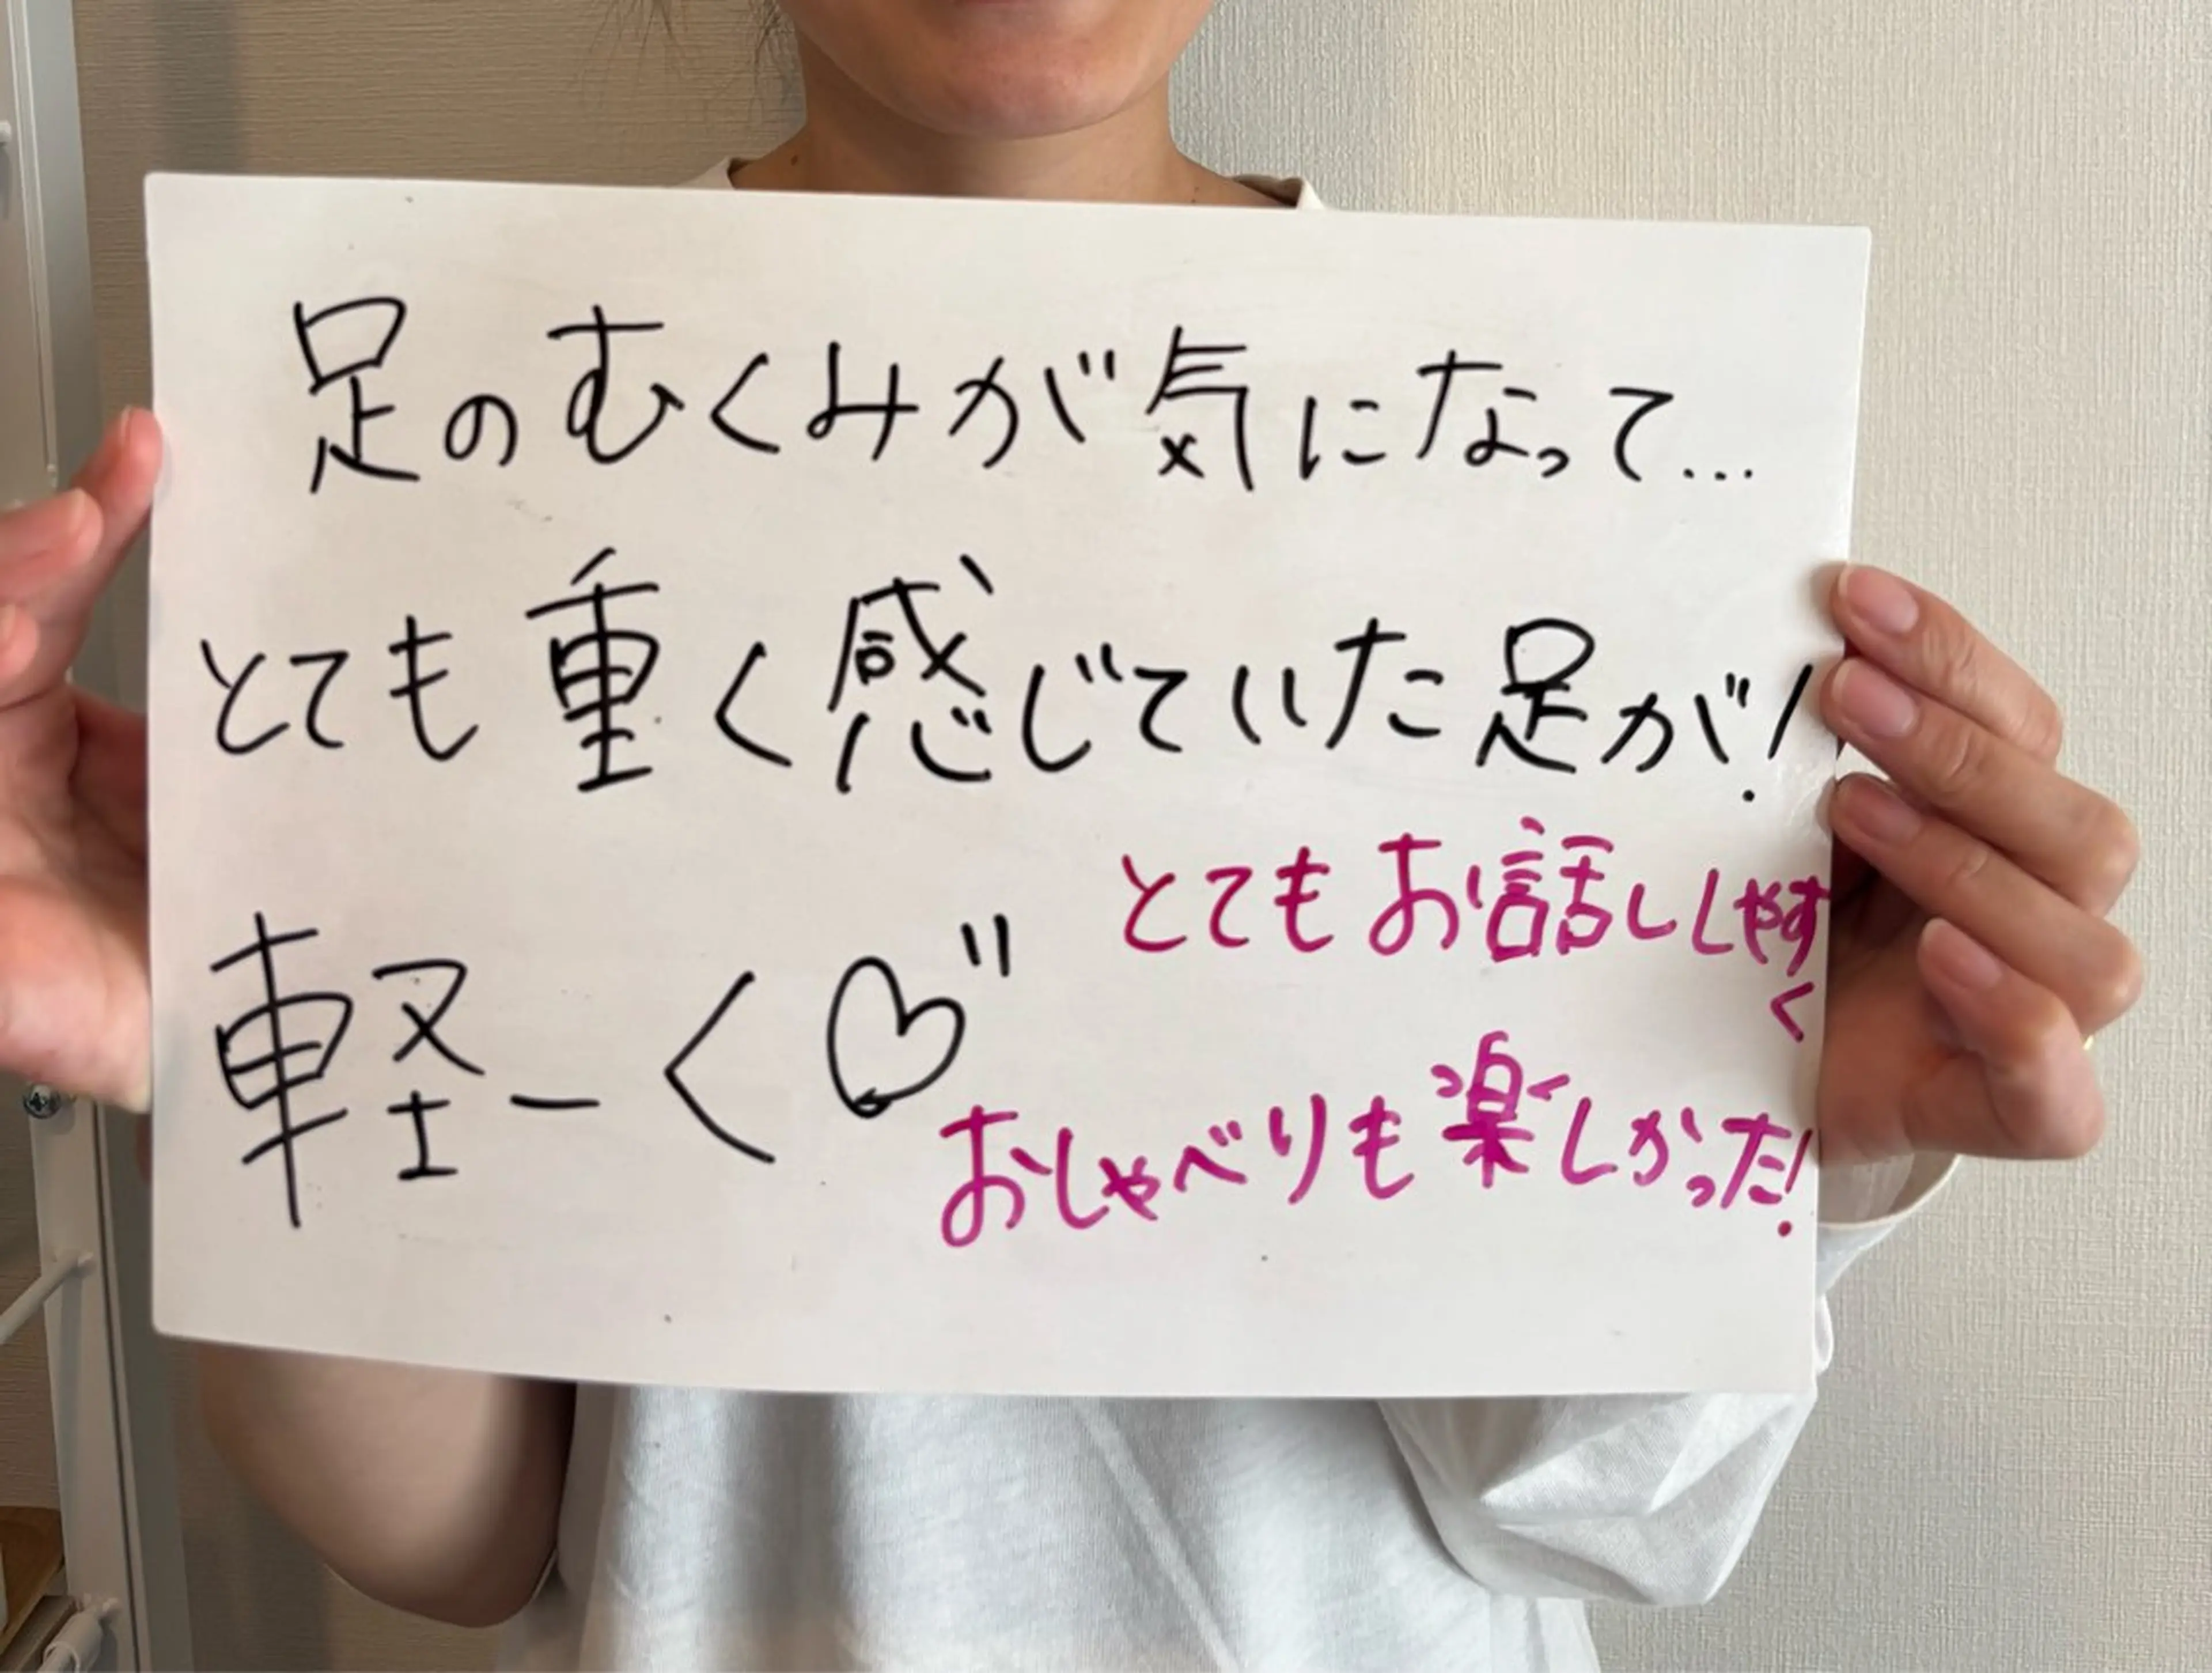 足のむくみが気になって...
とても重く感じていた足が!
軽ーく♡"
とてもお話ししやす
く
おしゃべりも楽しかった!